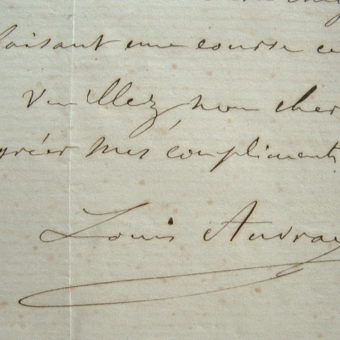 faisant une course
Veuillez, mon cher
agréer mes compliments
Louis Auvray